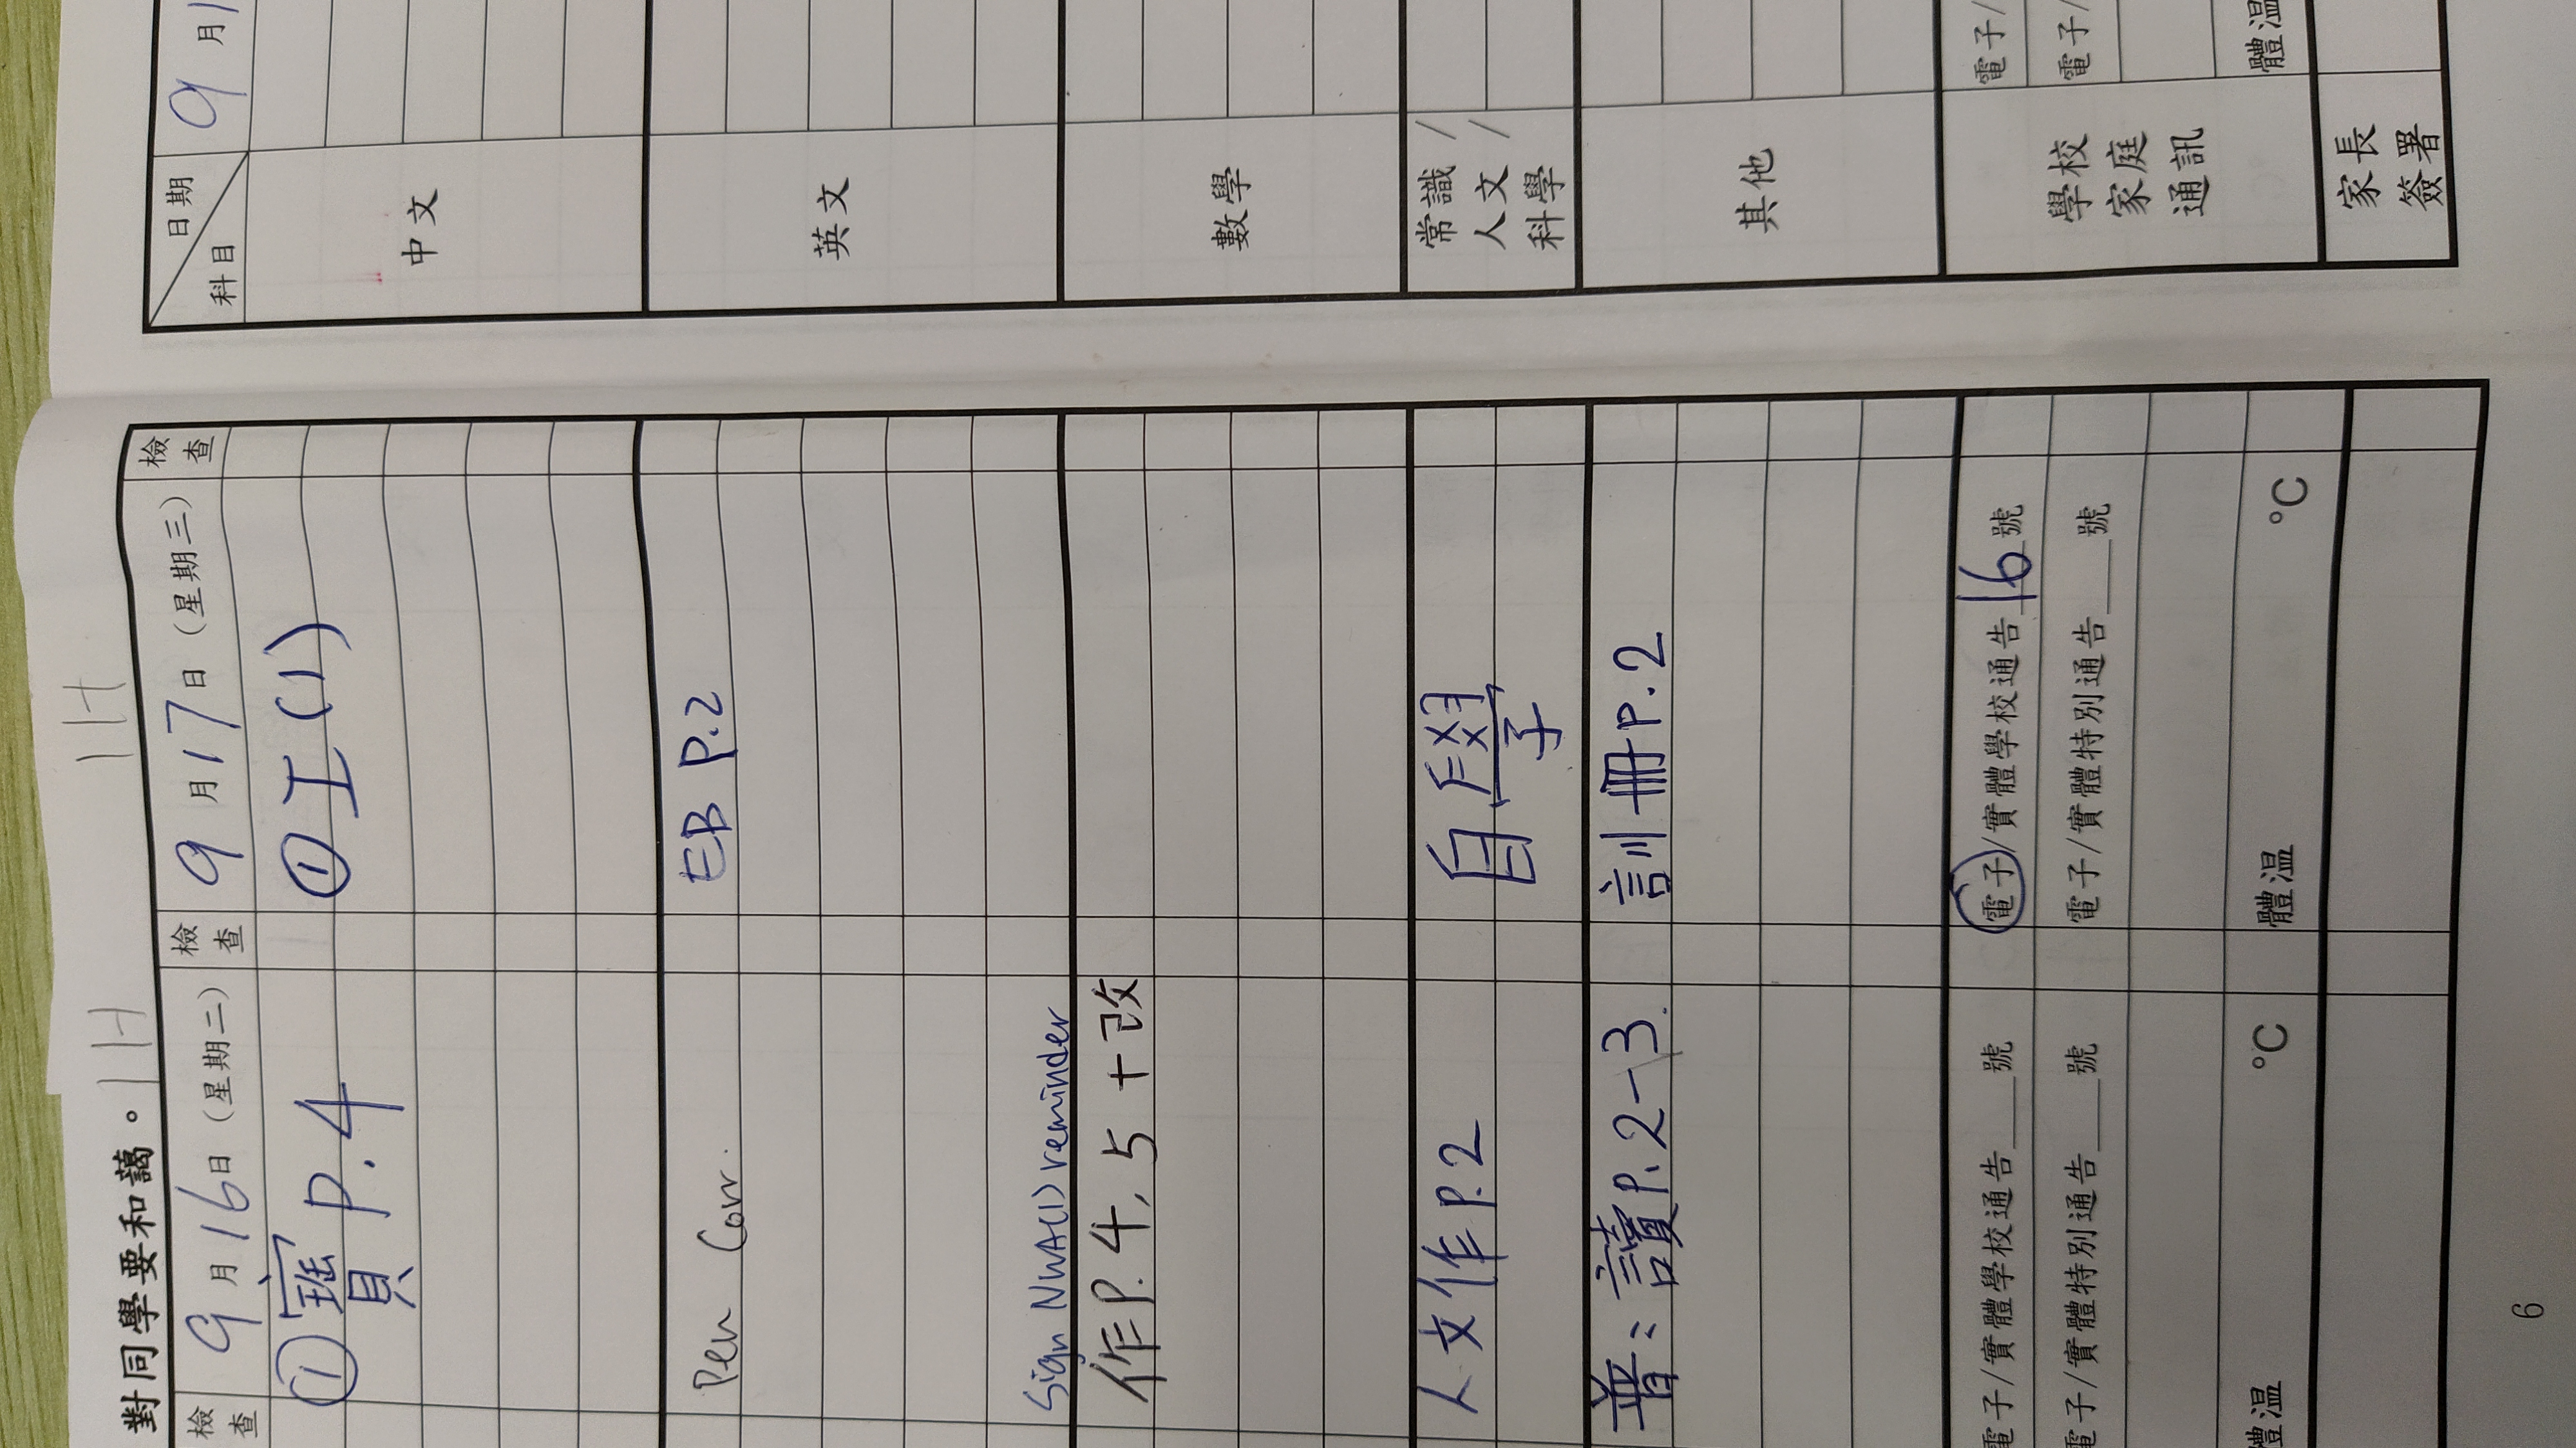 對同學要和藹。
1H
1H
檢查
9月16日（星期二）
檢查
9月17日（星期三）
檢查
① 寶P.4
① 工(1)
Pen Corr.
EB P.2
Sign NWA(1) reminder
作P.4, 5 + 改
人文作P.2
自學
普：讀P.2-3.
訓冊P.2
電子/實體學校通告 號
電子/實體學校通告16號
電子/實體特別通告 號
電子/實體特別通告 號
體温 °C
體温 °C
6
日期
科目
9月1
中文
英文
數學
常識/
人文/
科學
其他
學校
家庭
通訊
電子/
電子/
體温
家長
簽署